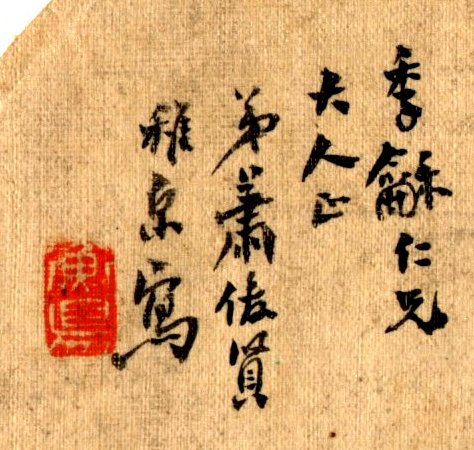 季龢仁兄
大人正
弟蕭俊賢
稚泉寫